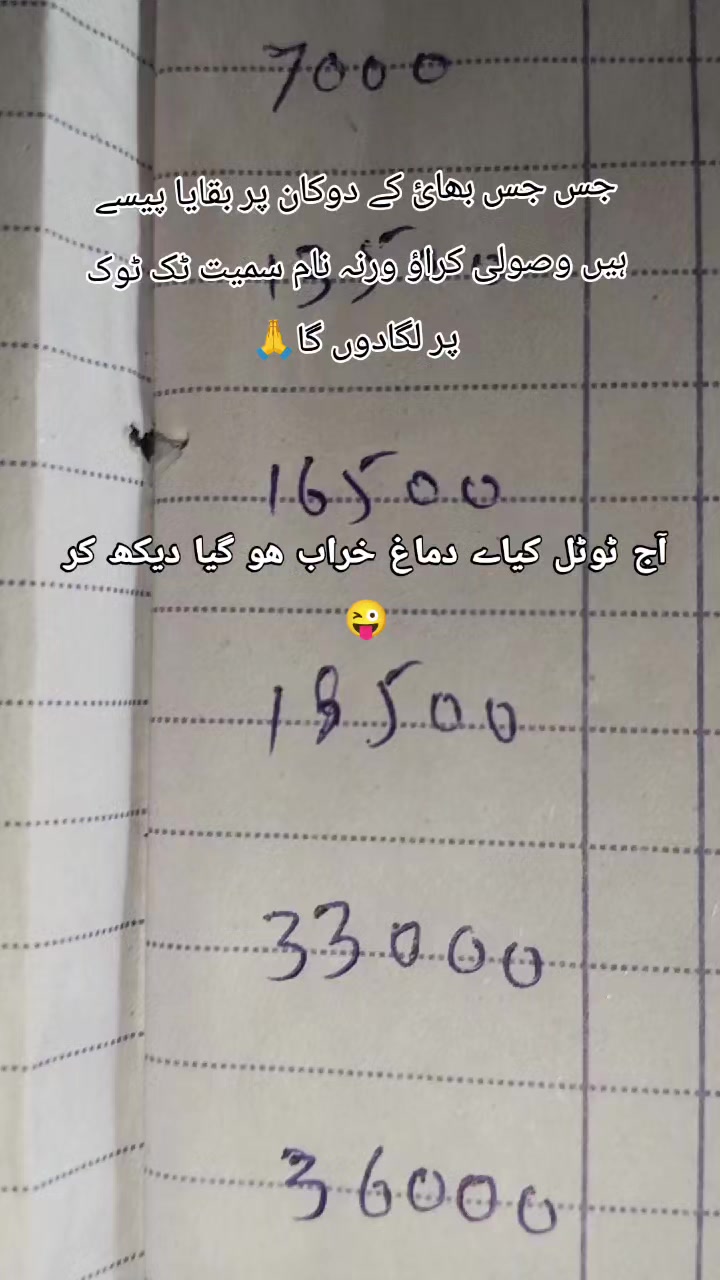 7000
جس جس بھائ کے دوکان پر بقایا پیسے
ہیں وصولی کراؤ ورنہ نام سمیت ٹک ٹوک
پر لگادوں گا🙏
16500
آج ٹوٹل کیاے دماغ خراب ھو گیا دیکھ کر
😜
18500
33000
36000